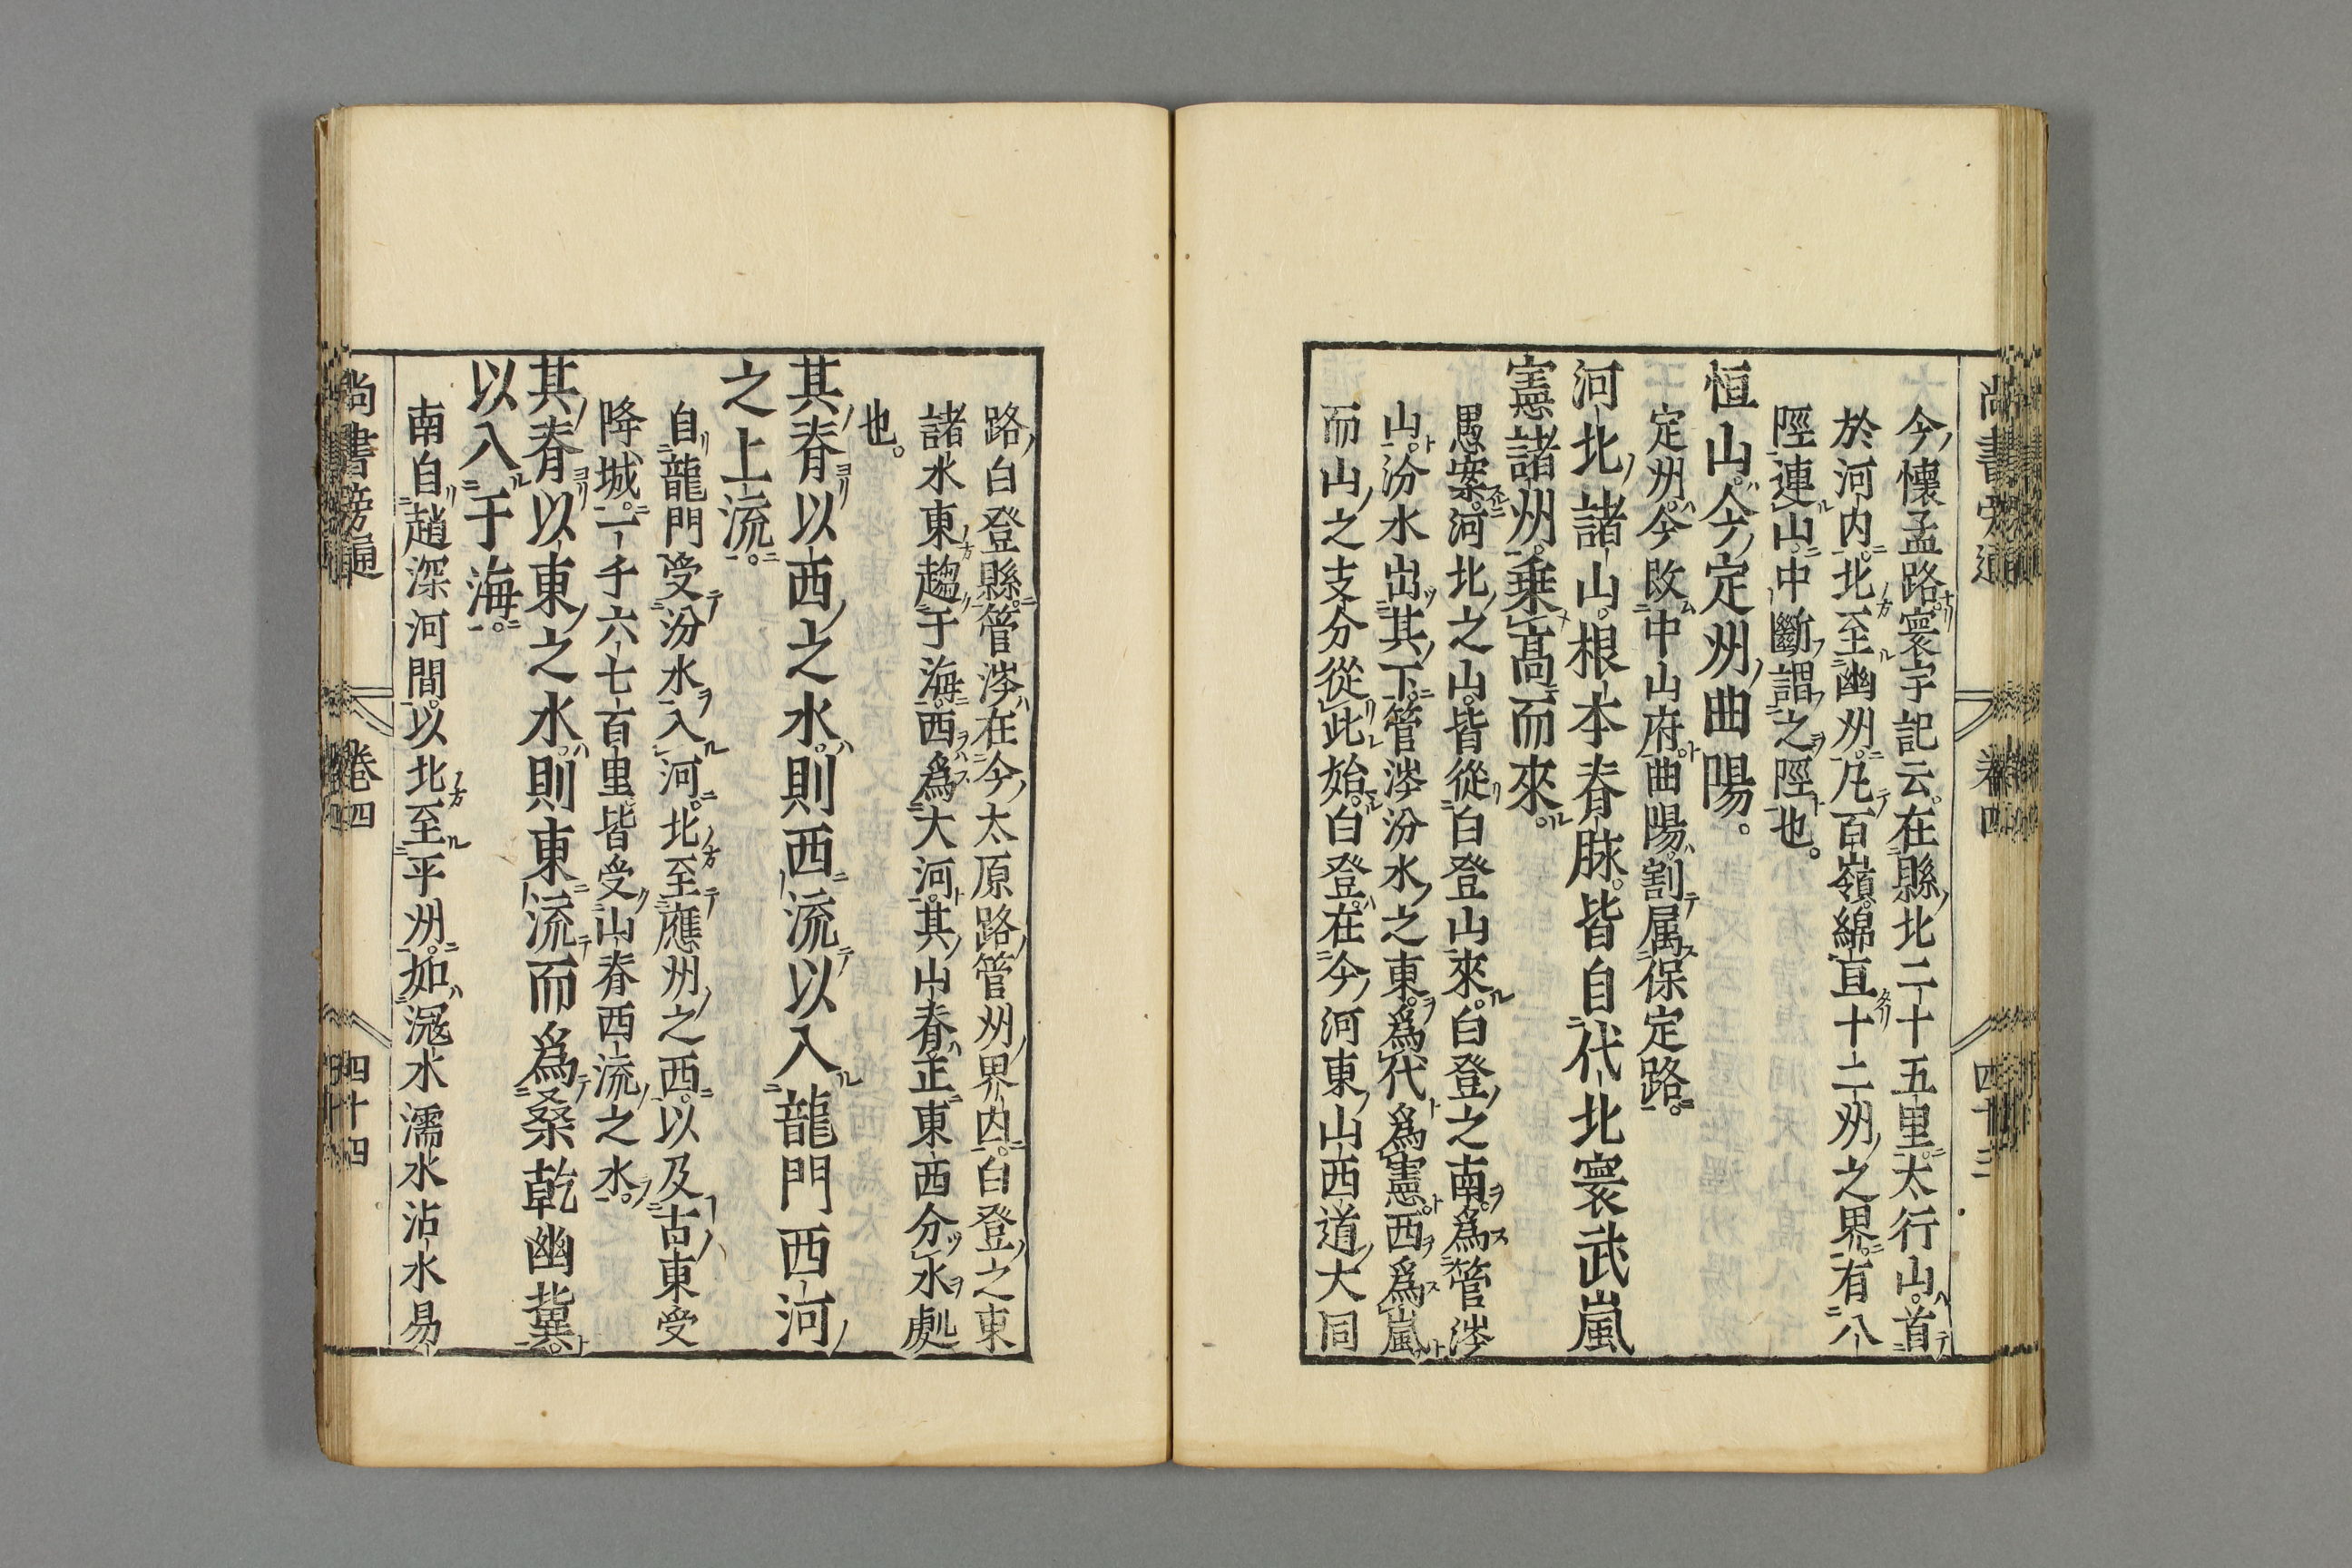 今懷孟路寰宇記云在縣北二十五里太行山首
於河内北至幽州凡百嶺綿亘十二州之界有八
陘連山中斷謂之陘也
恒山今定州曲陽
定州今改中山府曲陽割属保定路
河北諸山根本脊脉皆自代北寰武嵐
憲諸州乗高而來
愚案河北之山皆從白登山來白登之南爲管涔
山汾水出其下管涔汾水之東爲代爲憲西爲嵐
而山之支分從此始白登在今河東山西道大同
路白登縣管涔在今太原路管州界内白登之東
諸水東趨于海西爲大河其山脊正東西分水處
也
其脊以西之水則西流以入龍門西河
之上流
自龍門受汾水入河北至應州之西以及古東受
降城一千六七百里皆受山脊西流之水
其脊以東之水則東流而爲桑乾幽冀
以入于海
南自趙深河間以北至平州如滱水濡水沾水易
尚書旁通 卷四 四十三
尚書旁通 卷四 四十四